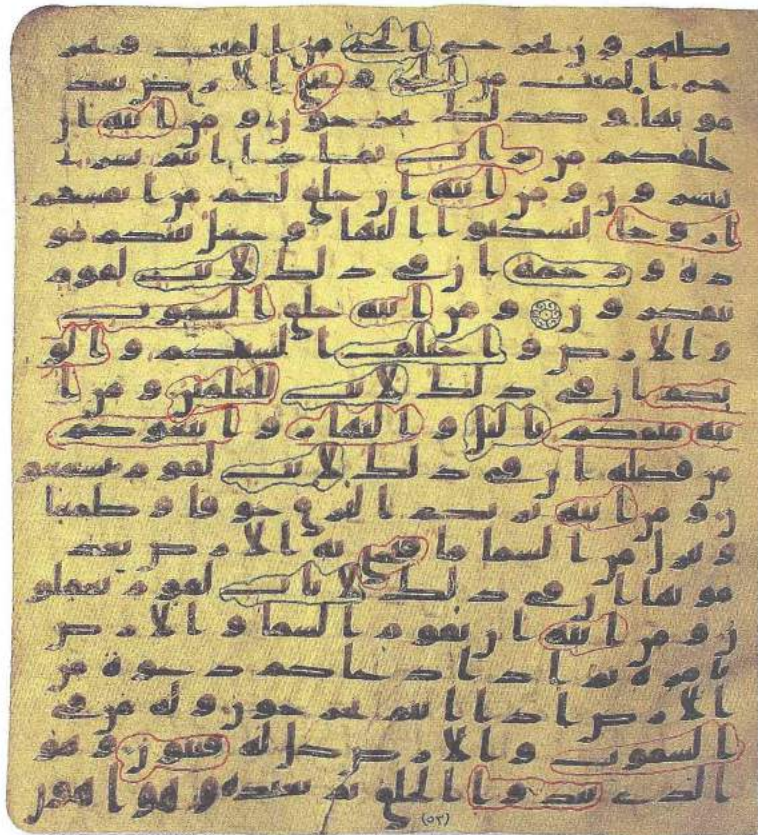 تظهرون يخرج الحي من الميت ويخر
ج الميت من الحي ويحي الارض بعد
موتها وكذلك تخرجون ومن ايته ان
خلقكم من تراب ثم اذا انتم بشر
تنتشرون ومن ايته ان خلق لكم من انفسكم
ازوجا لتسكنوا اليها وجعل بينكم مو
دة ورحمة ان في ذلك لايت لقوم
يتفكرون ومن ايته خلق السموت
والارض واختلف السنتكم والو
نكم ان في ذلك لايت للعلمين ومن ا
يته منمكم باليل والنهار وابتغوكم
من فضله ان في ذلك لايت لقوم يسمعو
ن ومن ايته يريكم البرق خوفا وطمعا
وينزل من السما ما فيحي به الارض بعد
موتها ان في ذلك لايت لقوم يعقلو
ن ومن ايته ان تقوم السما والارض
بامره ثم اذا دعاكم دعوة من
الارض اذا انتم تخرجون وله من في
السموت والارض كل له قنتون وهو
الذي يبدوا الخلق ثم يعيده وهو اهون
(٥٢)